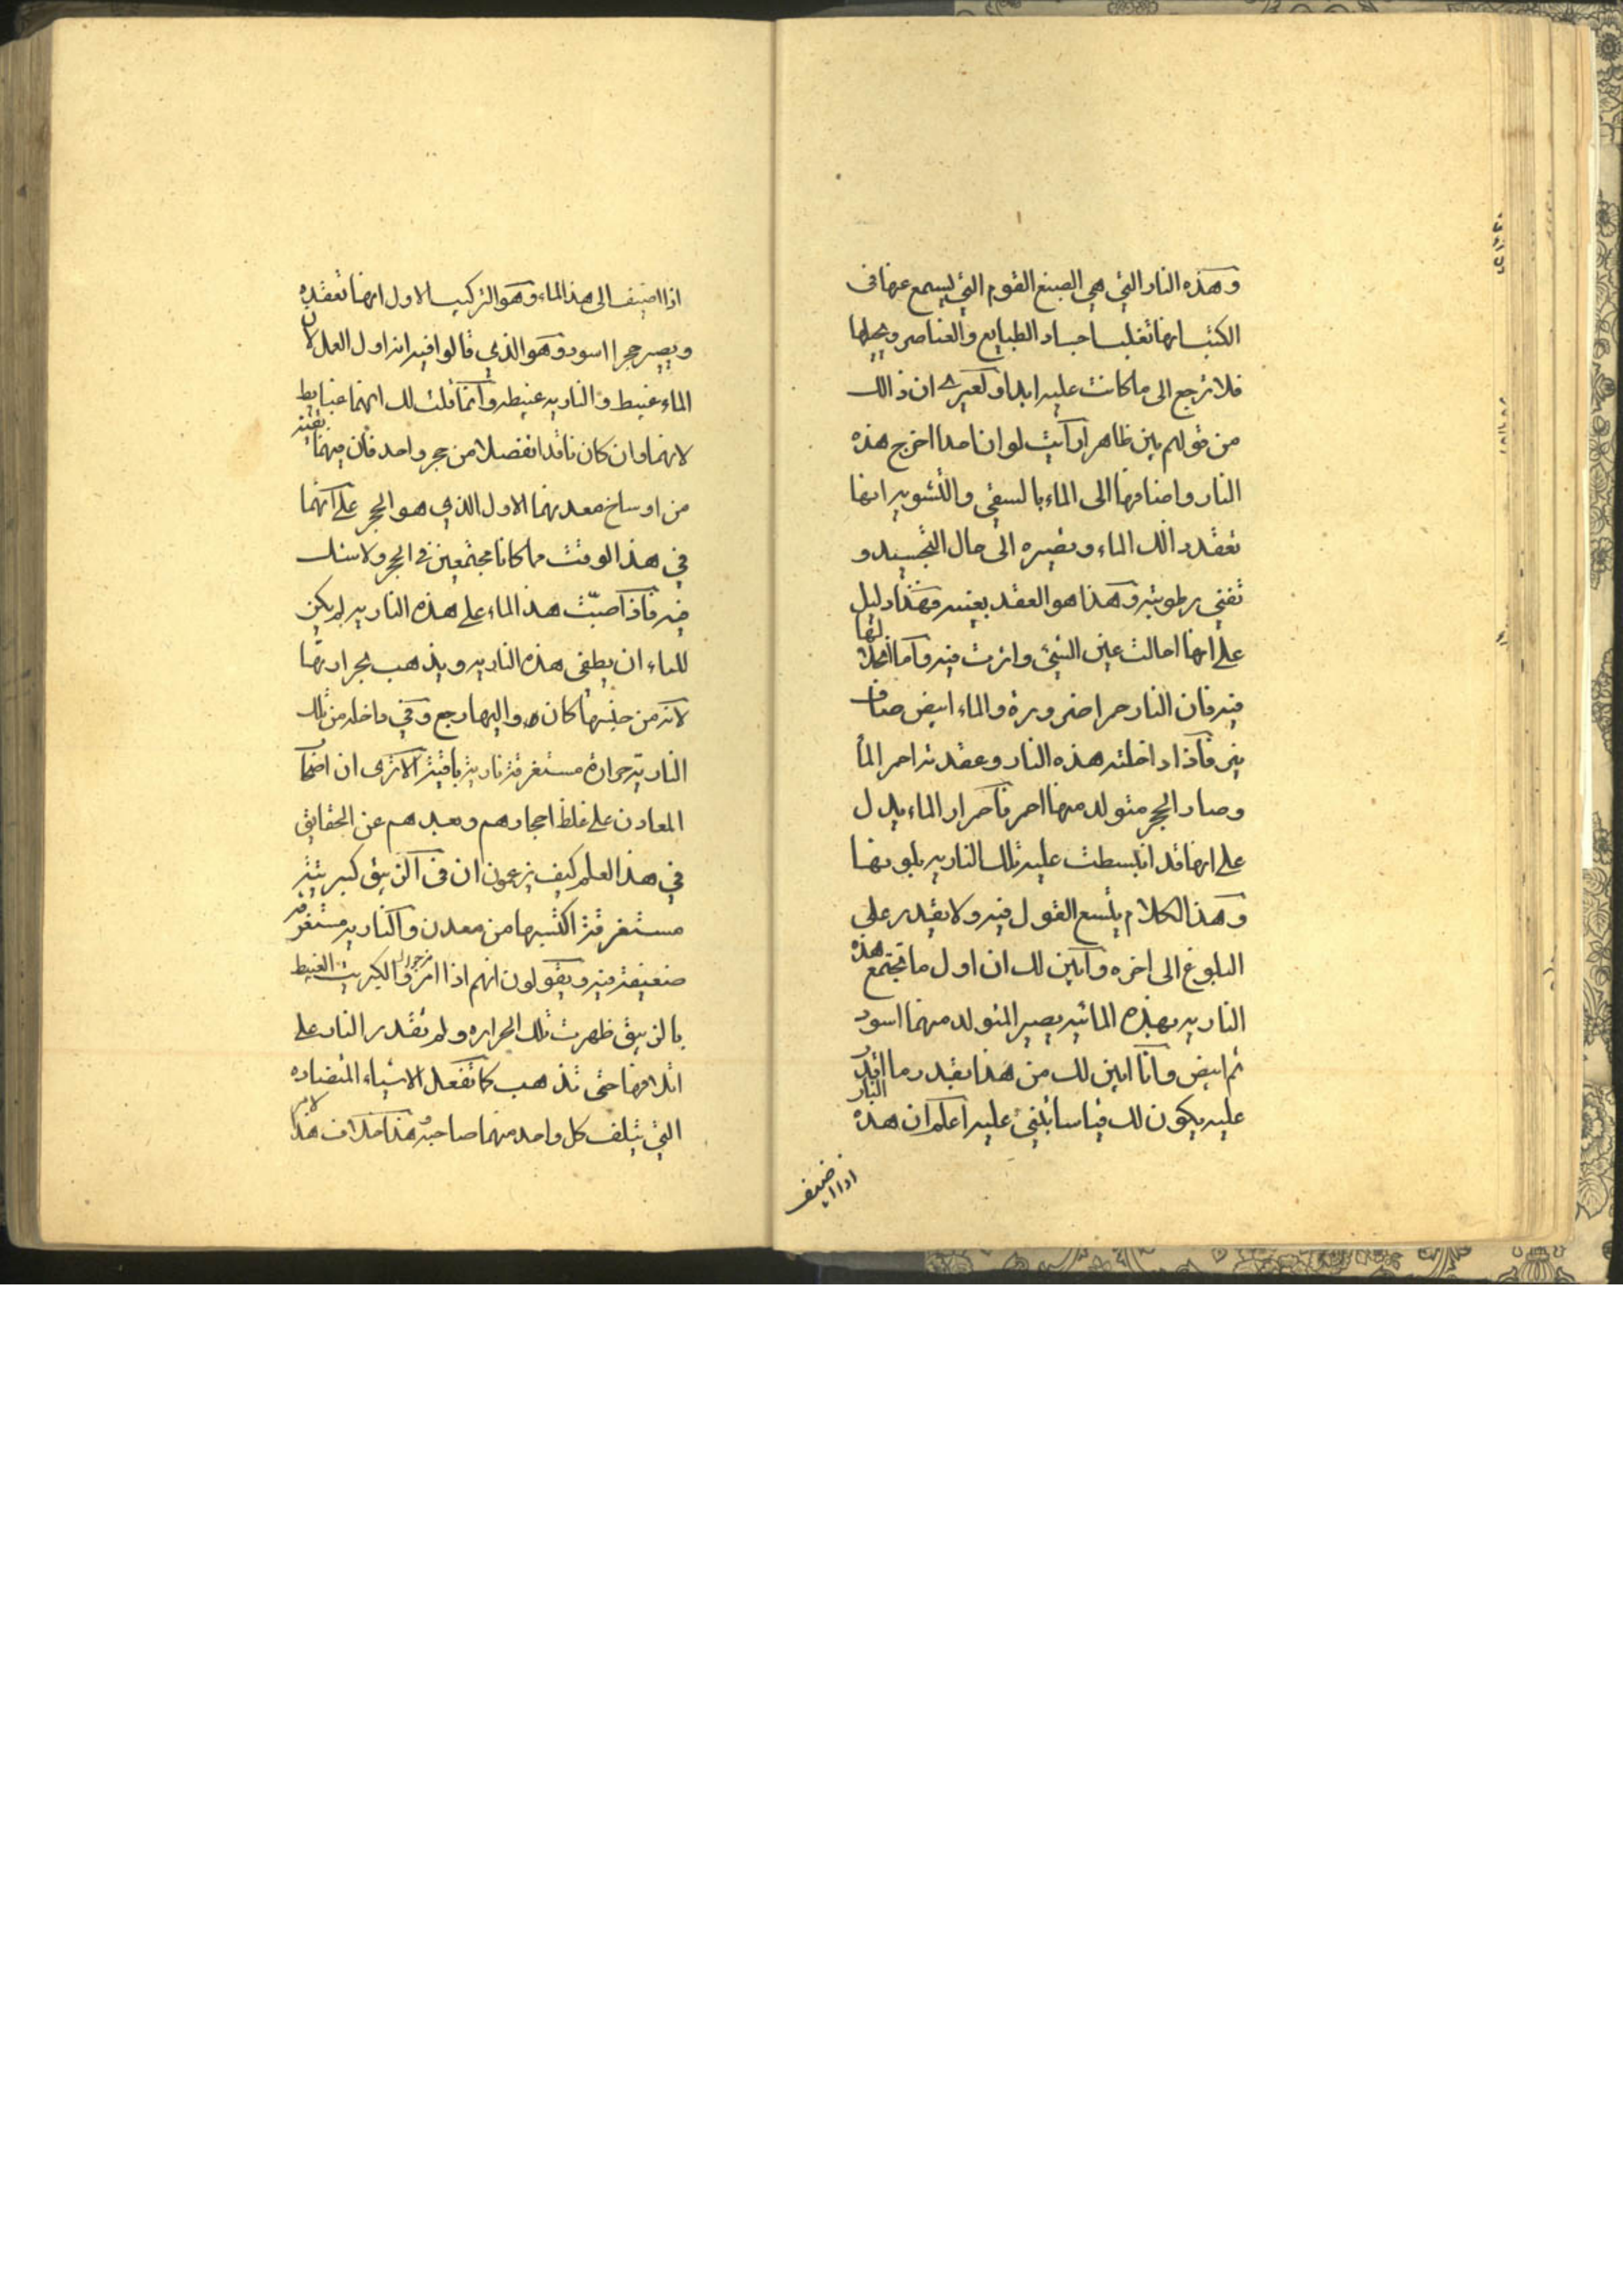 وهذه النار التي هي الصبغ القوم التي ليسمع عنها فى
الكتب انها تغلب اجساد الطبايع والعناصر ويحيلها
فلا ترجع الى ما كانت عليه ابدا ولعمرى ان ذالك
من قولهم بين ظاهر ارآيت لو ان احدا اخرج هذه
النار واضافها الى الماء بالسقي والتشويه انها
تعقد ذالك الماء وتصيره الى حال التجسيد و
تفني رطوبته وهذا هو العقد بعينه وهذا دليل
على انها احالت عين الشيئ واثرت فيه وآما انحلالها
فيه فان النار حمرا ضرورة والماء ابيض صاف
نير فآذا داخلته هذه النار وعقدته احمر المآ
وصار الحجر متولد منها احمر فآحمرار الماء يدل
على انها قد انبسطت عليه تلك الناريه بلونها
وهذا الكلام يتسع القول فيه ولا يقدر على
البلوغ الى اخره وآبين لك ان اول ما تجتمع هذه
الناريه بهذه المائيه يصير المتولد منهما اسود
ثم ابيض وآنا ابين لك من هذا بقدر ما اقدر
عليه يكون لك قياسا تبني عليه اعلم ان هذه النار
اذا اضيف
اذا اضيف الى هذا الماء وهو التركيب الاول انها تعقده
ويصير حجرا اسود وهو الذي قالوا فيه انه اول العمل لان
الماء غبيط والناريه غبيطه وآنما قلت لك انهما غبايط
لانهما وان كان قد انفصلا من حجر واحد فآن فيهما بقية
من اوساخ معدنهما الاول الذي هو الحجر على آنهما
في هذا الوقت ما كانا مجتمعين في الحجر ولا شك
فيه فآذا صبّت هذا الماء على هذه الناريه لم يكن
للماء ان يطفى هذه الناريه ويذهب بحرارتها
لانه من جنسها كان واليها رجع وفي داخله من تلك
الناريّه حرارة مستغرقة نارية باقية آلا ترى ان اصحاب
المعادن على غلظ احجارهم وبعدهم عن الحقايق
في هذا العلم كيف يزعمون ان فى آلزيبق كبريتية
مستغرقة اكتسبها من معدن وآلناريه مستغرقه
ضعيفة فيه ويقولون انهم اذا امزجوا الكبريت الغبيط
بالزيبق ظهرت تلك الحراره ولم تقدر النار على
اتلافها حتى تذهب كما تفعل الاشياء المتضاده
التي يتلف كل واحد منهما صاحبه هذا خلاف هذا